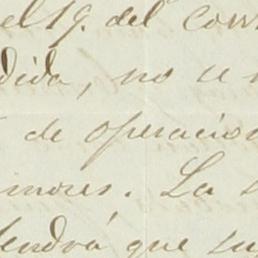 el 19. del corr
dida, no se
de operacion
imores. La
tendrá que su